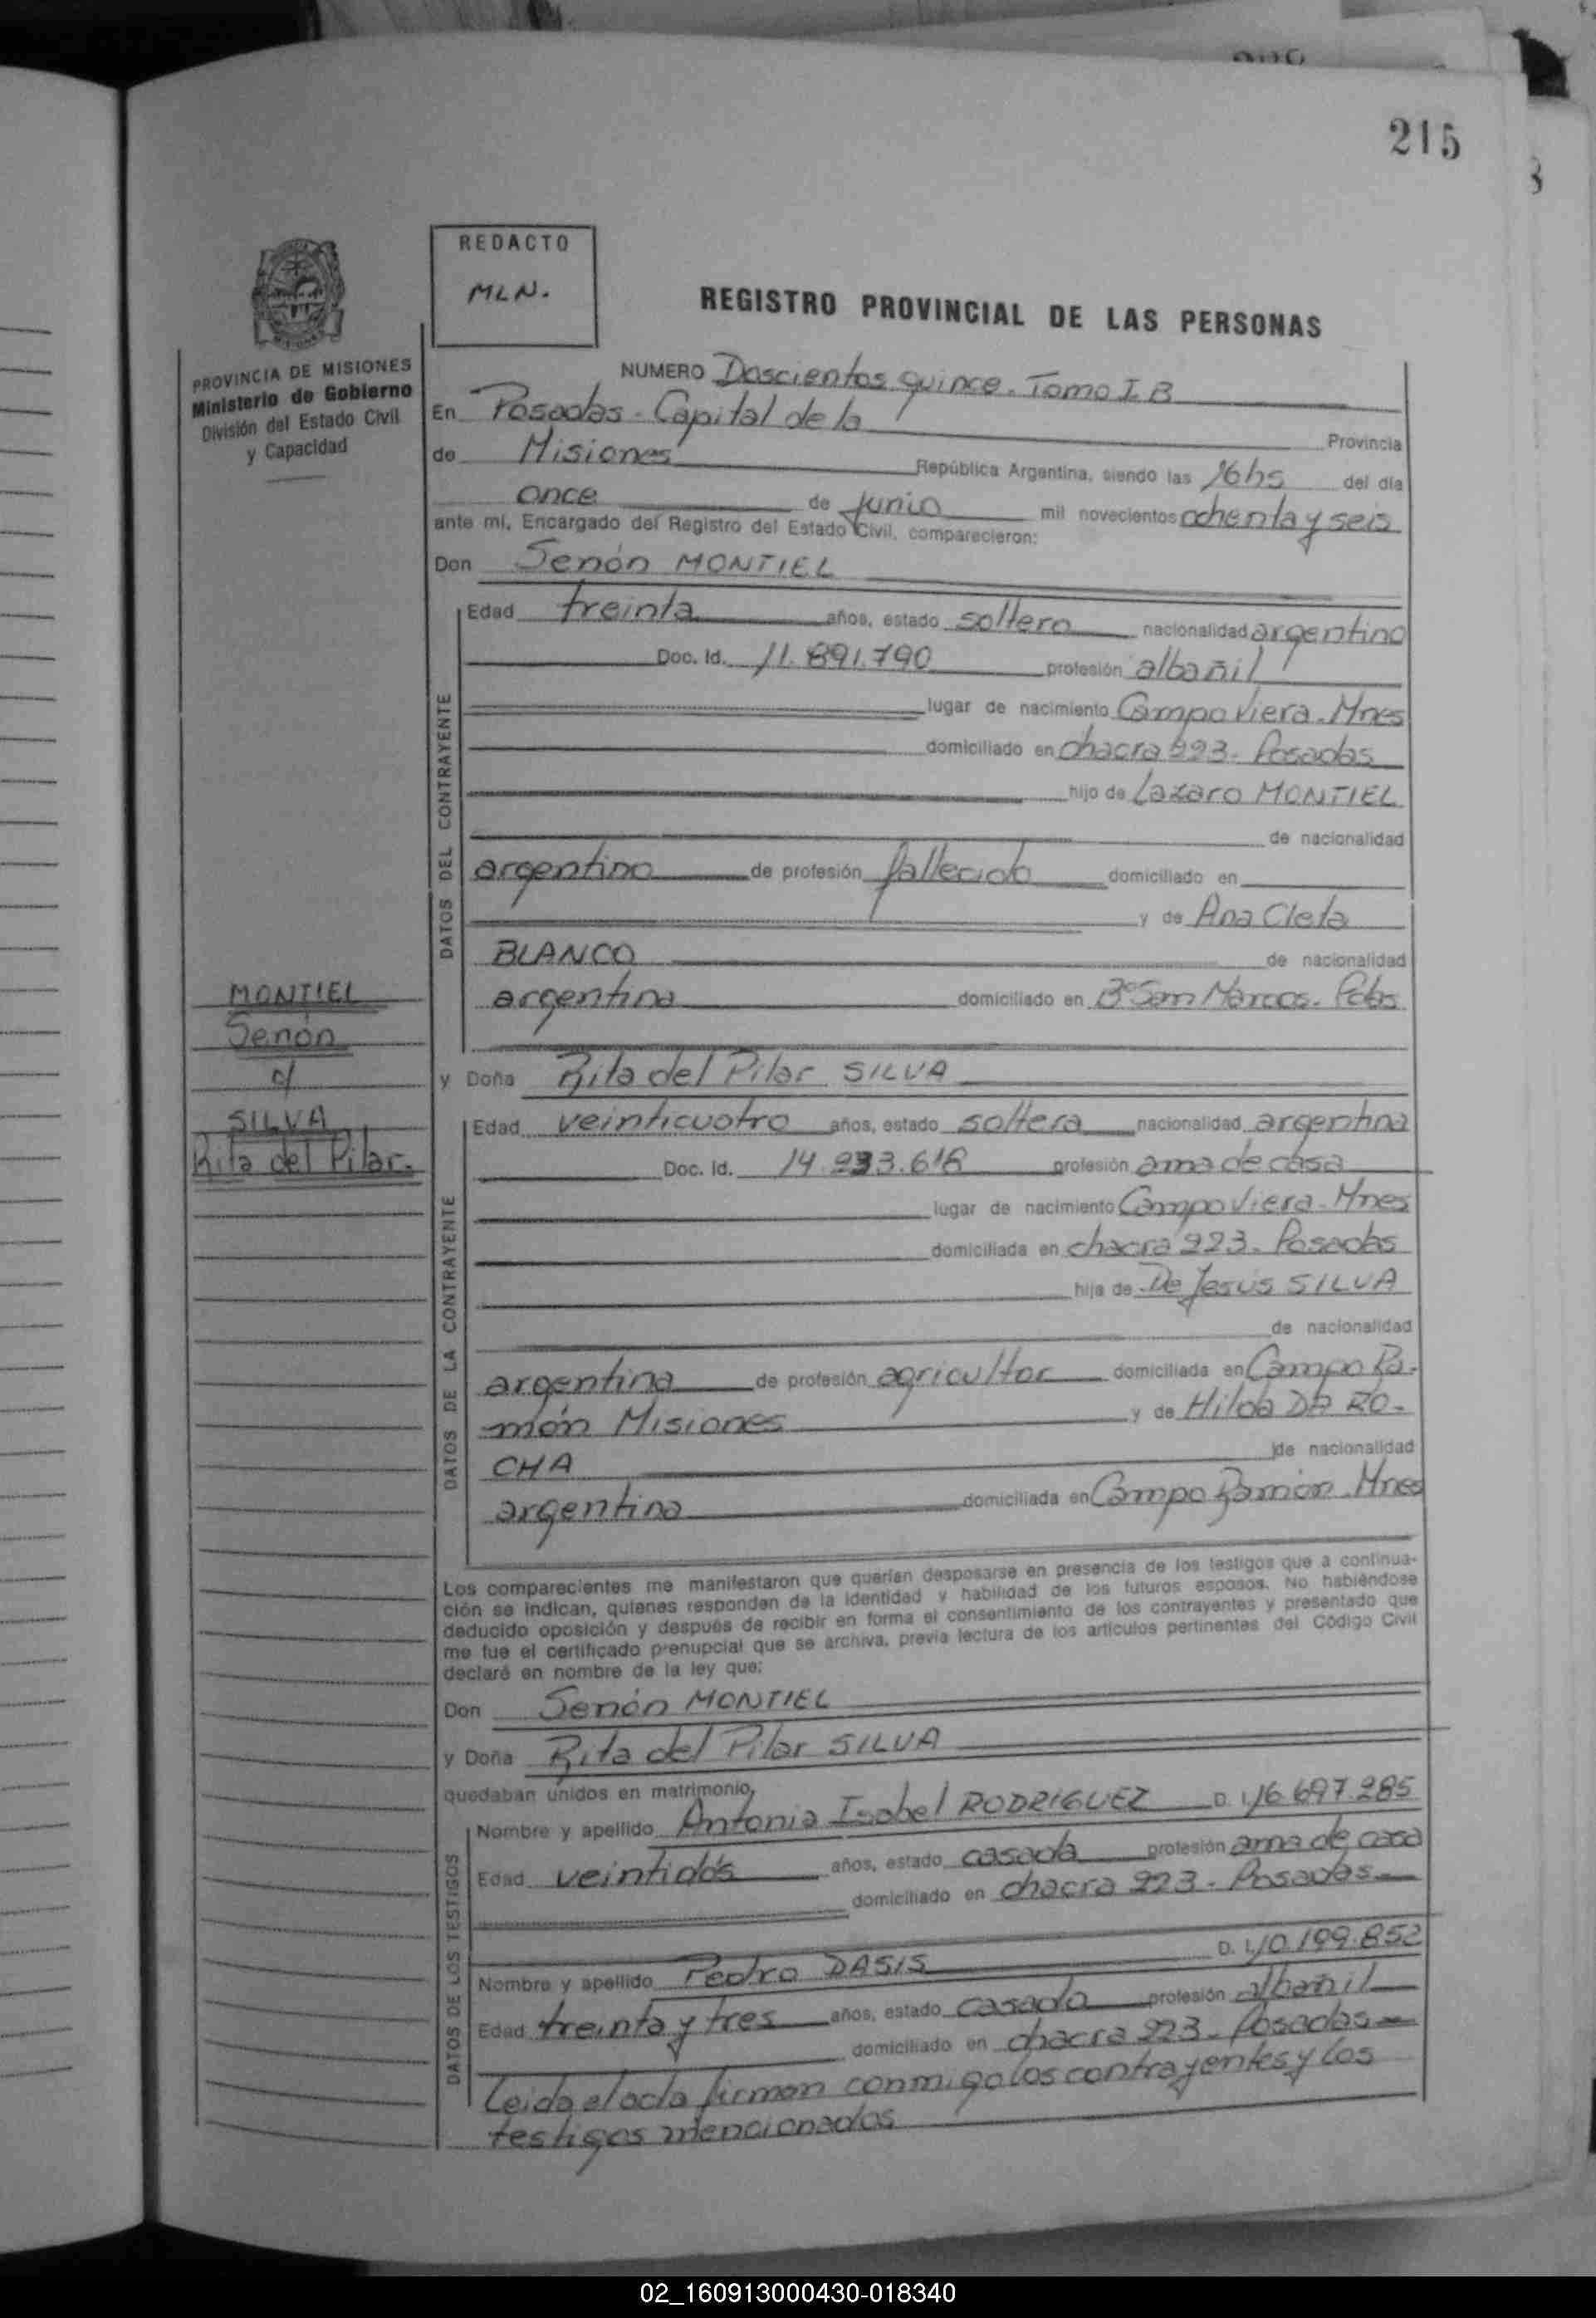 215
REDACTO
MLN.
REGISTRO PROVINCIAL DE LAS PERSONAS
PROVINCIA DE MISIONES
Ministerio de Gobierno
División del Estado Civil
y Capacidad
NUMERO Doscientos quince. Tomo I B
En Posadas - Capital de la Provincia
de Misiones República Argentina, siendo las 16hs del día
once de junio mil novecientos ochenta y seis
ante mí, Encargado del Registro del Estado Civil, comparecieron:
Don Senón MONTIEL
DATOS DEL CONTRAYENTE
Edad treinta años, estado soltero nacionalidad argentino
Doc. Id. 11.891.790 profesión albañil
lugar de nacimiento Campo Viera - Mnes
domiciliado en chacra 223 - Posadas
hijo de Lazaro MONTIEL
de nacionalidad
argentino de profesión fallecido domiciliado en
y de Ana Cleta
BLANCO de nacionalidad
argentina domiciliado en Bº San Marcos - Pdas
MONTIEL
Senón
c/
SILVA
Rita del Pilar.
y Doña Rita del Pilar SILVA
DATOS DE LA CONTRAYENTE
Edad veinticuatro años, estado soltera nacionalidad argentina
Doc. Id. 14. profesión ama de casa
lugar de nacimiento Campo Viera - Mnes
domiciliada en chacra 223 - Posadas
hija de De Jesus SILVA
de nacionalidad
argentina de profesión agricultor domiciliada en Campo Ra-
món Misiones y de Hilda DA RO-
CHA de nacionalidad
argentina domiciliada en Campo Ramón - Mnes
Los comparecientes me manifestaron que querían desposarse en presencia de los testigos que a continua-
ción se indican, quienes responden de la identidad y habilidad de los futuros esposos. No habiéndose
deducido oposición y después de recibir en forma el consentimiento de los contrayentes y presentado que
me fue el certificado prenupcial que se archiva, previa lectura de los artículos pertinentes del Código Civil
declaré en nombre de la ley que:
Don Senón MONTIEL
y Doña Rita del Pilar SILVA
quedaban unidos en matrimonio,
DATOS DE LOS TESTIGOS
Nombre y apellido Antonia Isabel RODRIGUEZ D. I. 16.697.285
Edad veintidós años, estado casada profesión ama de casa
domiciliado en chacra 223 - Posadas
Nombre y apellido Pedro DASIS D. I. 10.199.852
Edad treinta y tres años, estado casado profesión albañil
domiciliado en chacra 223 - Posadas
Leida el acta firman conmigo los contrayentes y los
testigos mencionados
02_160913000430-018340